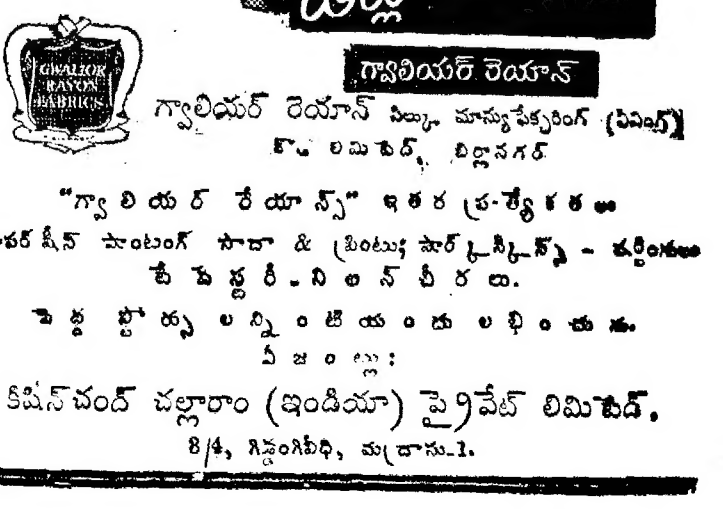 GWALIOR
RAYON
FABRICS
గ్వాలియర్ రెయాన్
గ్వాలియర్ రెయాన్ సిల్కు మాన్యుఫేక్చరింగ్ (వీవింగ్)
కొ. లిమిటెడ్, బిర్లానగర్
"గ్వాలియర్ రేయాన్స్" ఇతర ప్రత్యేకతలు
పర్ షీన్ షాంటంగ్ సాదా & ప్రింటు; షార్క్ స్కిన్స్ - షర్టింగులు
టేపెస్టరీ - నిలన్ చీరలు.
పెద్ద స్టోర్సులన్నింటియందు లభించును.
ఏజంట్లు:
కిషిన్‌చంద్ చల్లారాం (ఇండియా) ప్రైవేట్ లిమిటెడ్.
8/4, గిడ్డంగివీధి, మద్రాసు-1.